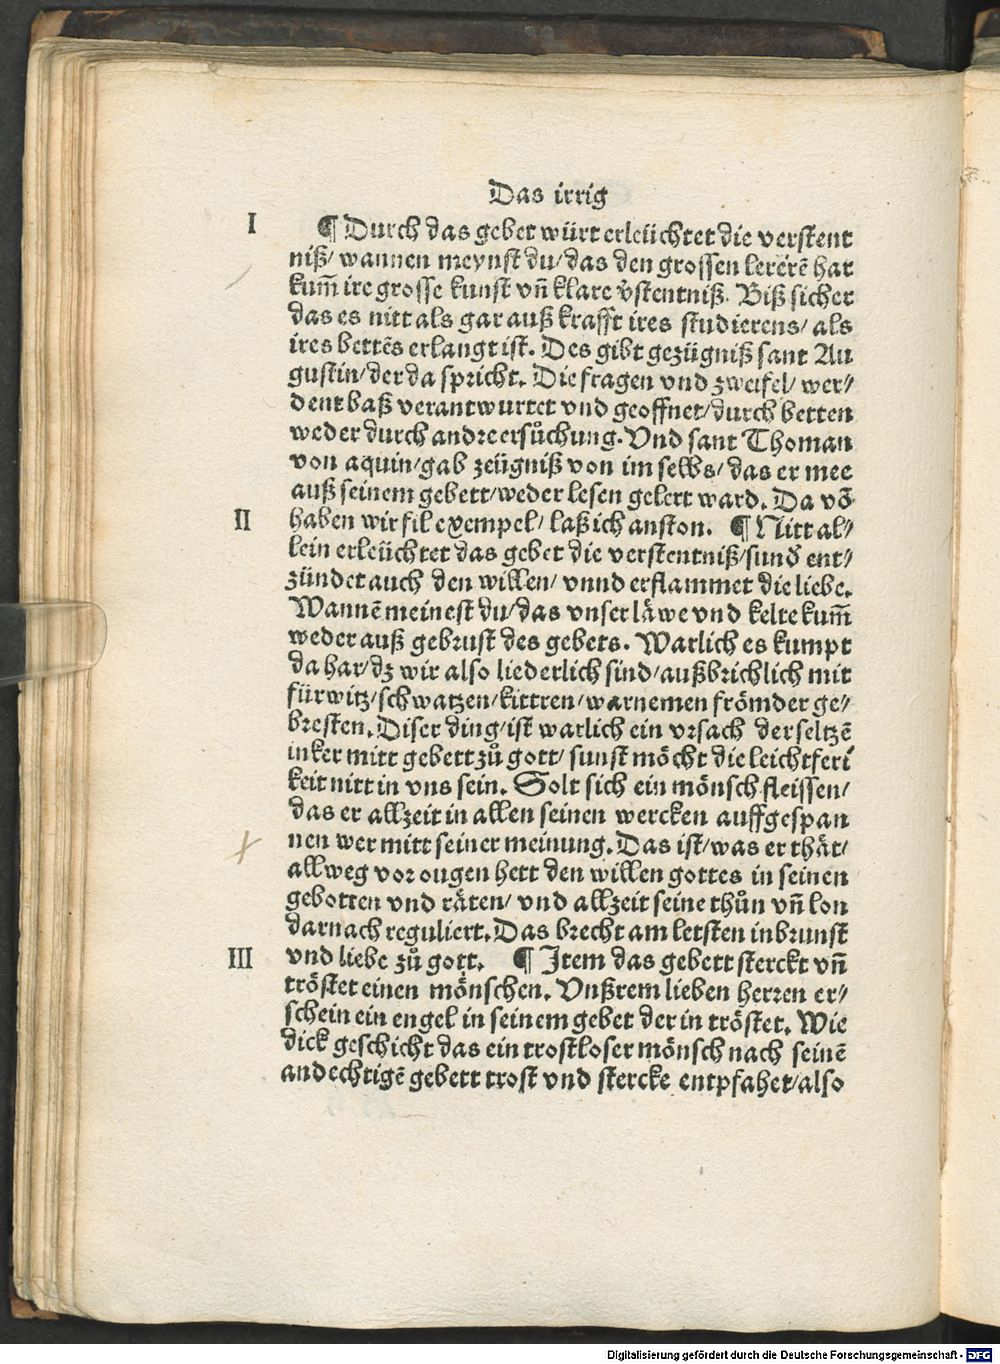 Das irrig
I ¶ Durch das gebet würt erleüchtet die verstent
niß/ wannen meynst du/ das den grossen lererē har
kum̄ ire grosse kunst vn̄ klare v̄stentniß. Biß sicher
das es nitt als gar auß krafft ires studierens/ als
ires bettēs erlangt ist. Des gibt gezügniß sant Au
gustin/ der da spricht. Die fragen vnd zweifel/ wer/
dent baß verantwurtet vnd geoffnet/ durch betten
weder durch andre ersůchung. Vnd sant Thoman
von aquin/ gab zeügniß von im selbs/ das er mee
auß seinem gebett/ weder lesen gelert ward. Da vō
II haben wir fil exempel/ laß ich anston. ¶ Nitt al/
lein erleüchtet das gebet die verstentniß/ sund̄ ent/
zündet auch den willen/ vnnd erflammet die liebe.
Wannē meinest du/ das vnser läwe vnd kelte kum̄
weder auß gebrust des gebets. Warlich es kumpt
da har/ dz wir also liederlich sind/ außbrichlich mit
fürwitz/ schwatzen/ kittren/ warnemen frömder ge/
bresten. Diser ding/ ist warlich ein vrsach der seltzē
inker mitt gebett zů gott/ sunst möcht die leichtferi
keit nitt in vns sein. Solt sich ein mönsch fleissen/
das er allzeit in allen seinen wercken auffgespan
nen wer mitt seiner meinung. Das ist/ was er thät/
allweg vor ougen hett den willen gottes in seinen
gebotten vnd räten/ vnd allzeit seine thůn vn̄ lon
darnach reguliert. Das brecht am letsten inbrunst
III vnd liebe zů gott. ¶ Item das gebett sterckt vn̄
tröstet einen mönschen. Vnßrem lieben herren er/
schein ein engel in seinem gebet der in tröstet. Wie
dick geschicht das ein trostloser mönsch nach seinē
andechtigē gebett trost vnd stercke entpfahet/ also
Digitalisierung gefördert durch die Deutsche Forschungsgemeinschaft - DFG